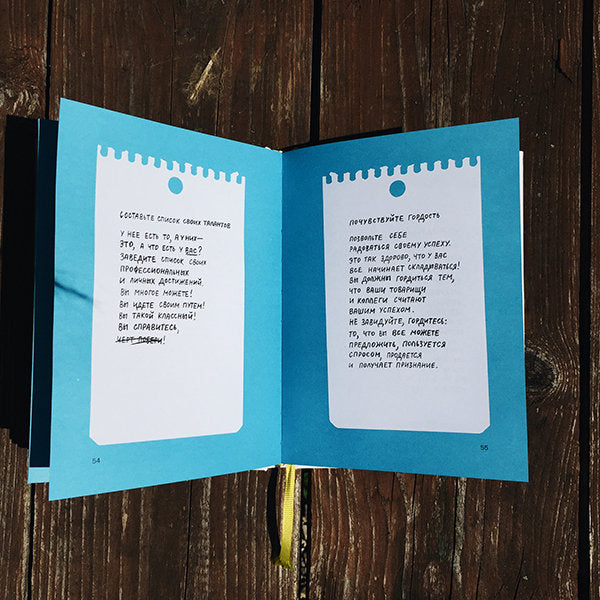 СОСТАВЬТЕ СПИСОК СВОИХ ТАЛАНТОВ
У НЕЕ ЕСТЬ ТО, А У НИХ—
ЭТО, А ЧТО ЕСТЬ У ВАС?
ЗАВЕДИТЕ СПИСОК СВОИХ
ПРОФЕССИОНАЛЬНЫХ
И ЛИЧНЫХ ДОСТИЖЕНИЙ.
ВЫ МНОГОЕ МОЖЕТЕ!
ВЫ ИДЕТЕ СВОИМ ПУТЕМ!
ВЫ ТАКОЙ КЛАССНЫЙ!
ВЫ СПРАВИТЕСЬ,
ЧЕРТ ПОБЕРИ!
54
ПОЧУВСТВУЙТЕ ГОРДОСТЬ
ПОЗВОЛЬТЕ СЕБЕ
РАДОВАТЬСЯ СВОЕМУ УСПЕХУ.
ЭТО ТАК ЗДОРОВО, ЧТО У ВАС
ВСЕ НАЧИНАЕТ СКЛАДЫВАТЬСЯ!
ВЫ ДОЛЖНЫ ГОРДИТЬСЯ ТЕМ,
ЧТО ВАШИ ТОВАРИЩИ
И КОЛЛЕГИ СЧИТАЮТ
ВАШИМ УСПЕХОМ.
НЕ ЗАВИДУЙТЕ, ГОРДИТЕСЬ:
ТО, ЧТО ВЫ ВСЕ МОЖЕТЕ
ПРЕДЛОЖИТЬ, ПОЛЬЗУЕТСЯ
СПРОСОМ, ПРОДАЕТСЯ
И ПОЛУЧАЕТ ПРИЗНАНИЕ.
55